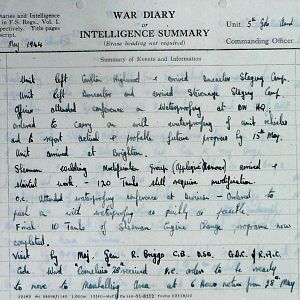 WAR DIARY
or
INTELLIGENCE SUMMARY
(Erase heading not required)
Summary of Events and Information
Unit 5th
Commanding Officer
aries and Intelligence
in F.S. Regs., Vol. I.
pectively. Title pages
script.
May 1944
Unit left Highwood & arrived Staging Camp.
Unit left and arrived Staging Camp.
Officer attended conference on Waterproofing at HQ.
Ordered to carry on with waterproofing of unit vehicles
and to report actual & probable future progress by 15th May.
Unit arrived at Brighton.
Sherman welding Modification Group (Applique Armour) arrived &
started work - 120 Tanks still require modification.
O.C. attended waterproofing conference at - Ordered to
push on with waterproofing as quickly as possible.
Final 10 Tanks of Sherman Engine Change programme now
completed.
Visit by Maj. Gen. R. Briggs C.B. DSO. R.A.C.
Code Word Cornelius received i.e. order to be ready
to move to Marshalling Area at 6 hours notice from 28 May